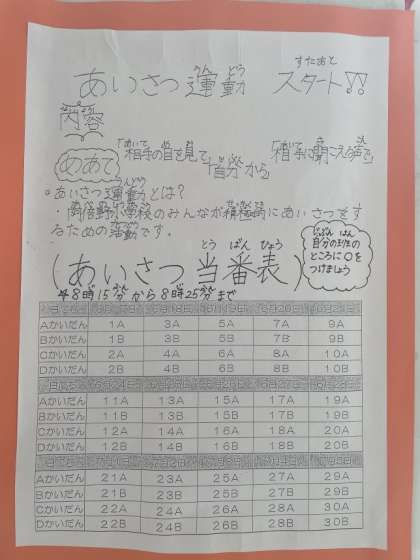 あいさつ運動 スタート!!
うん どう
すたあと
内容
ないよう
めあて
「相手の目を見て」
「自分から」
「相手に聞こえる声で」
。あいさつ運動とは?
小学校のみんなが積極的にあいさつをす
るための活動です。
じぶん はん
自分の班の
ところに〇を
つけましょう
とう ばん ひょう
(あいさつ当番表)
8時15分から8時25分まで
Aかいだん 1A 3A 5A 7A 9A
Bかいだん 1B 3B 5B 7B 9B
Cかいだん 2A 4A 6A 8A 10A
Dかいだん 2B 4B 6B 8B 10B
Aかいだん 11A 13A 15A 17A 19A
Bかいだん 11B 13B 15B 17B 19B
Cかいだん 12A 14A 16A 18A 20A
Dかいだん 12B 14B 16B 18B 20B
Aかいだん 21A 23A 25A 27A 29A
Bかいだん 21B 23B 25B 27B 29B
Cかいだん 22A 24A 26A 28A 30A
Dかいだん 22B 24B 26B 28B 30B